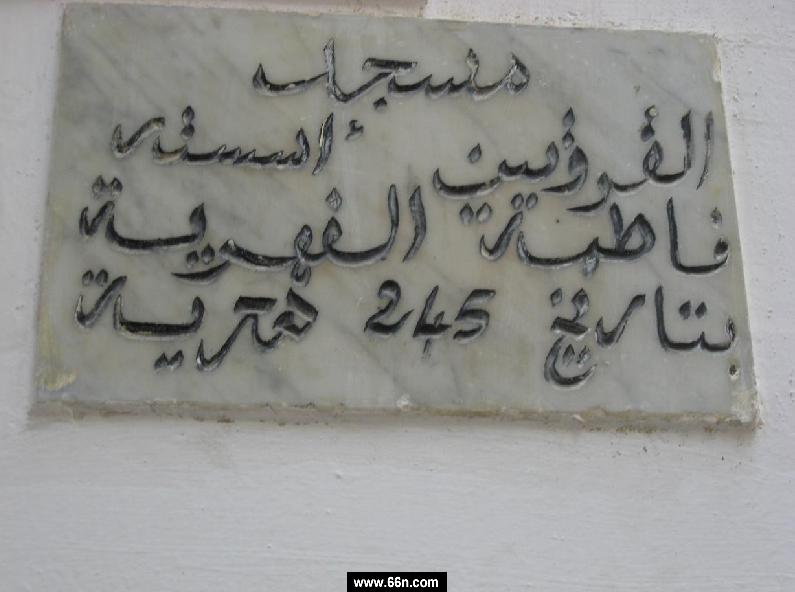 مسجد
القرويين أسسته
فاطمة الفهرية
بتاريخ 245 هجرية
www.66n.com